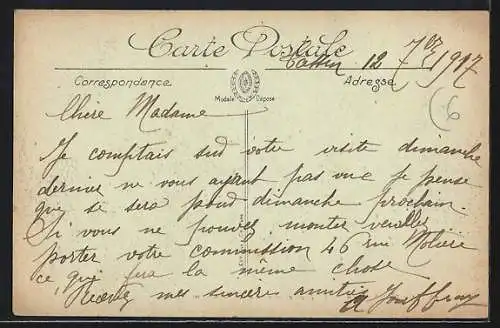 Carte Postale
12 7bre 1917
Correspondance
Modèle Déposé
Adresse
6
Chère Madame
Je comptais sur votre visite dimanche
dernier ne vous ayant pas vue je pense
que se sera pour dimanche prochain.
Si vous ne pouvez monter veuillez
porter votre commission 46 rue Molière
ce que fera la même chose
Recevez mes sincère amitiés
Jouffray